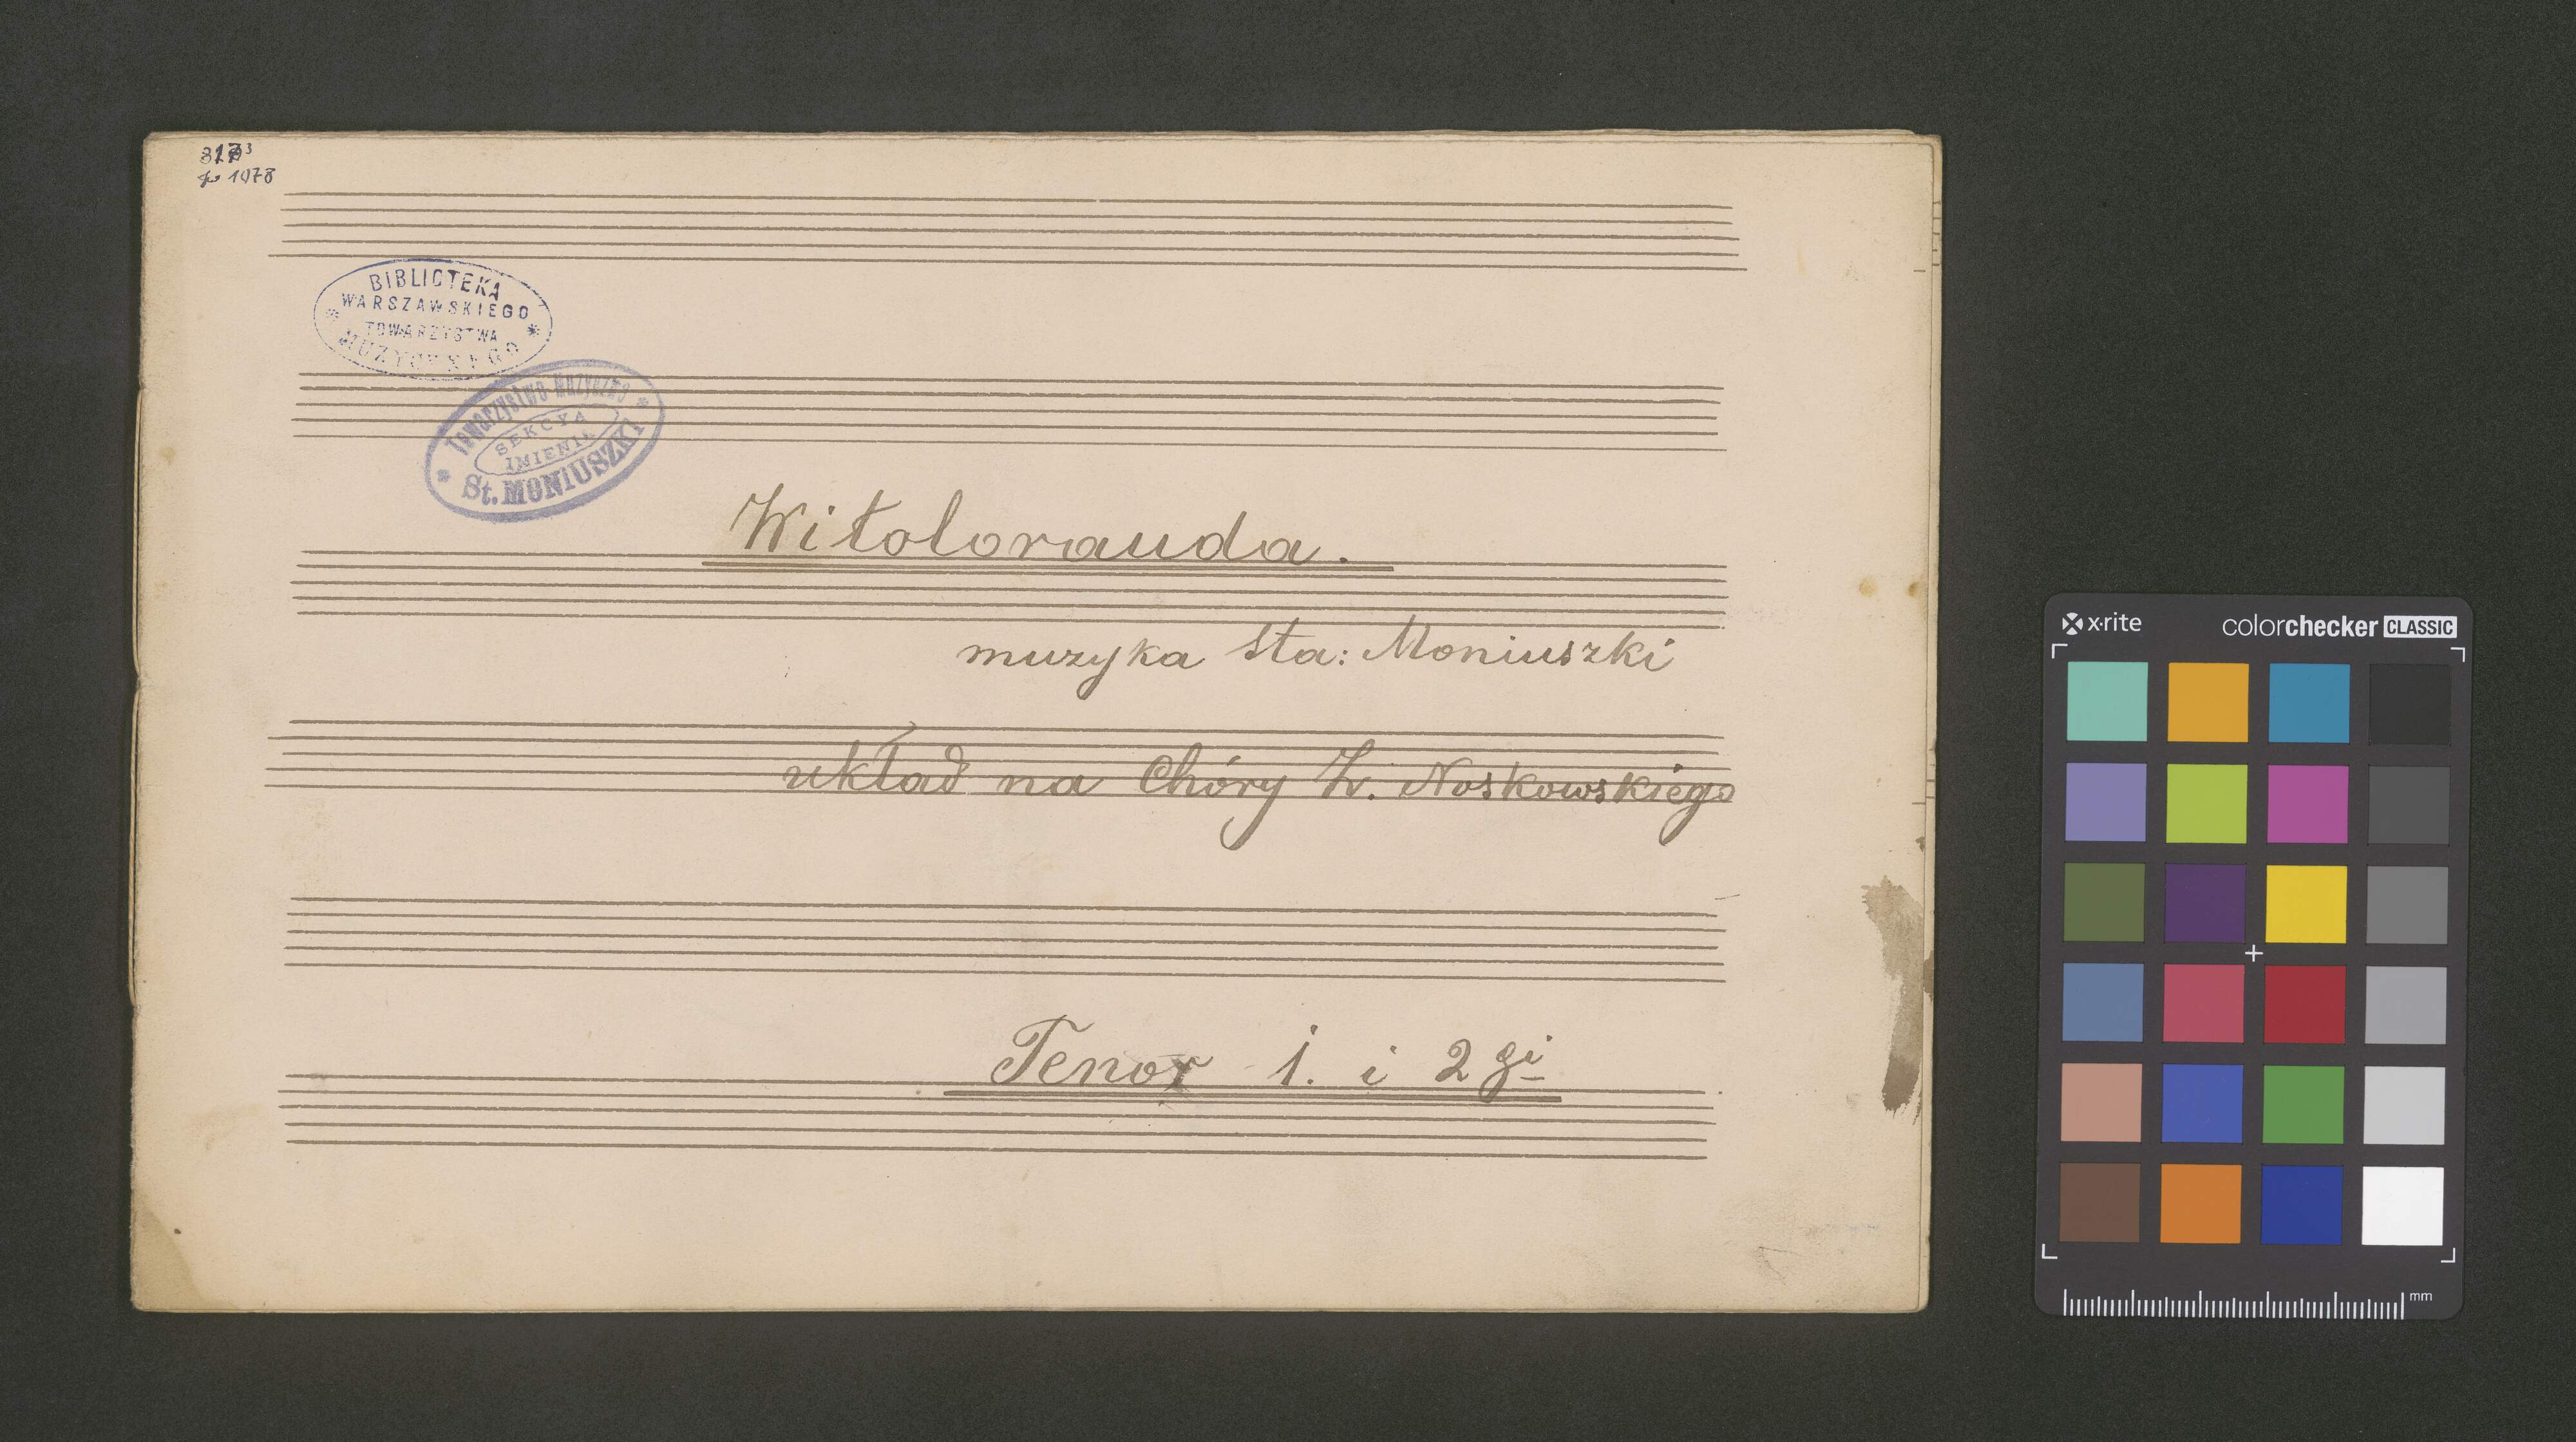 1078
BIBLIOTEKA
WARSZAWSKIEGO
TOWARZYSTWA
MUZYCZNEGO
Towarzystwo Muzyczne
SEKCYA
IMIENIA
St. MONIUSZKI
Witolorauda.
muzyka Sta: Moniuszki
układ na Chóry Z. Noskowskiego
Tenor 1. i 2gi
x·rite
colorchecker CLASSIC
mm